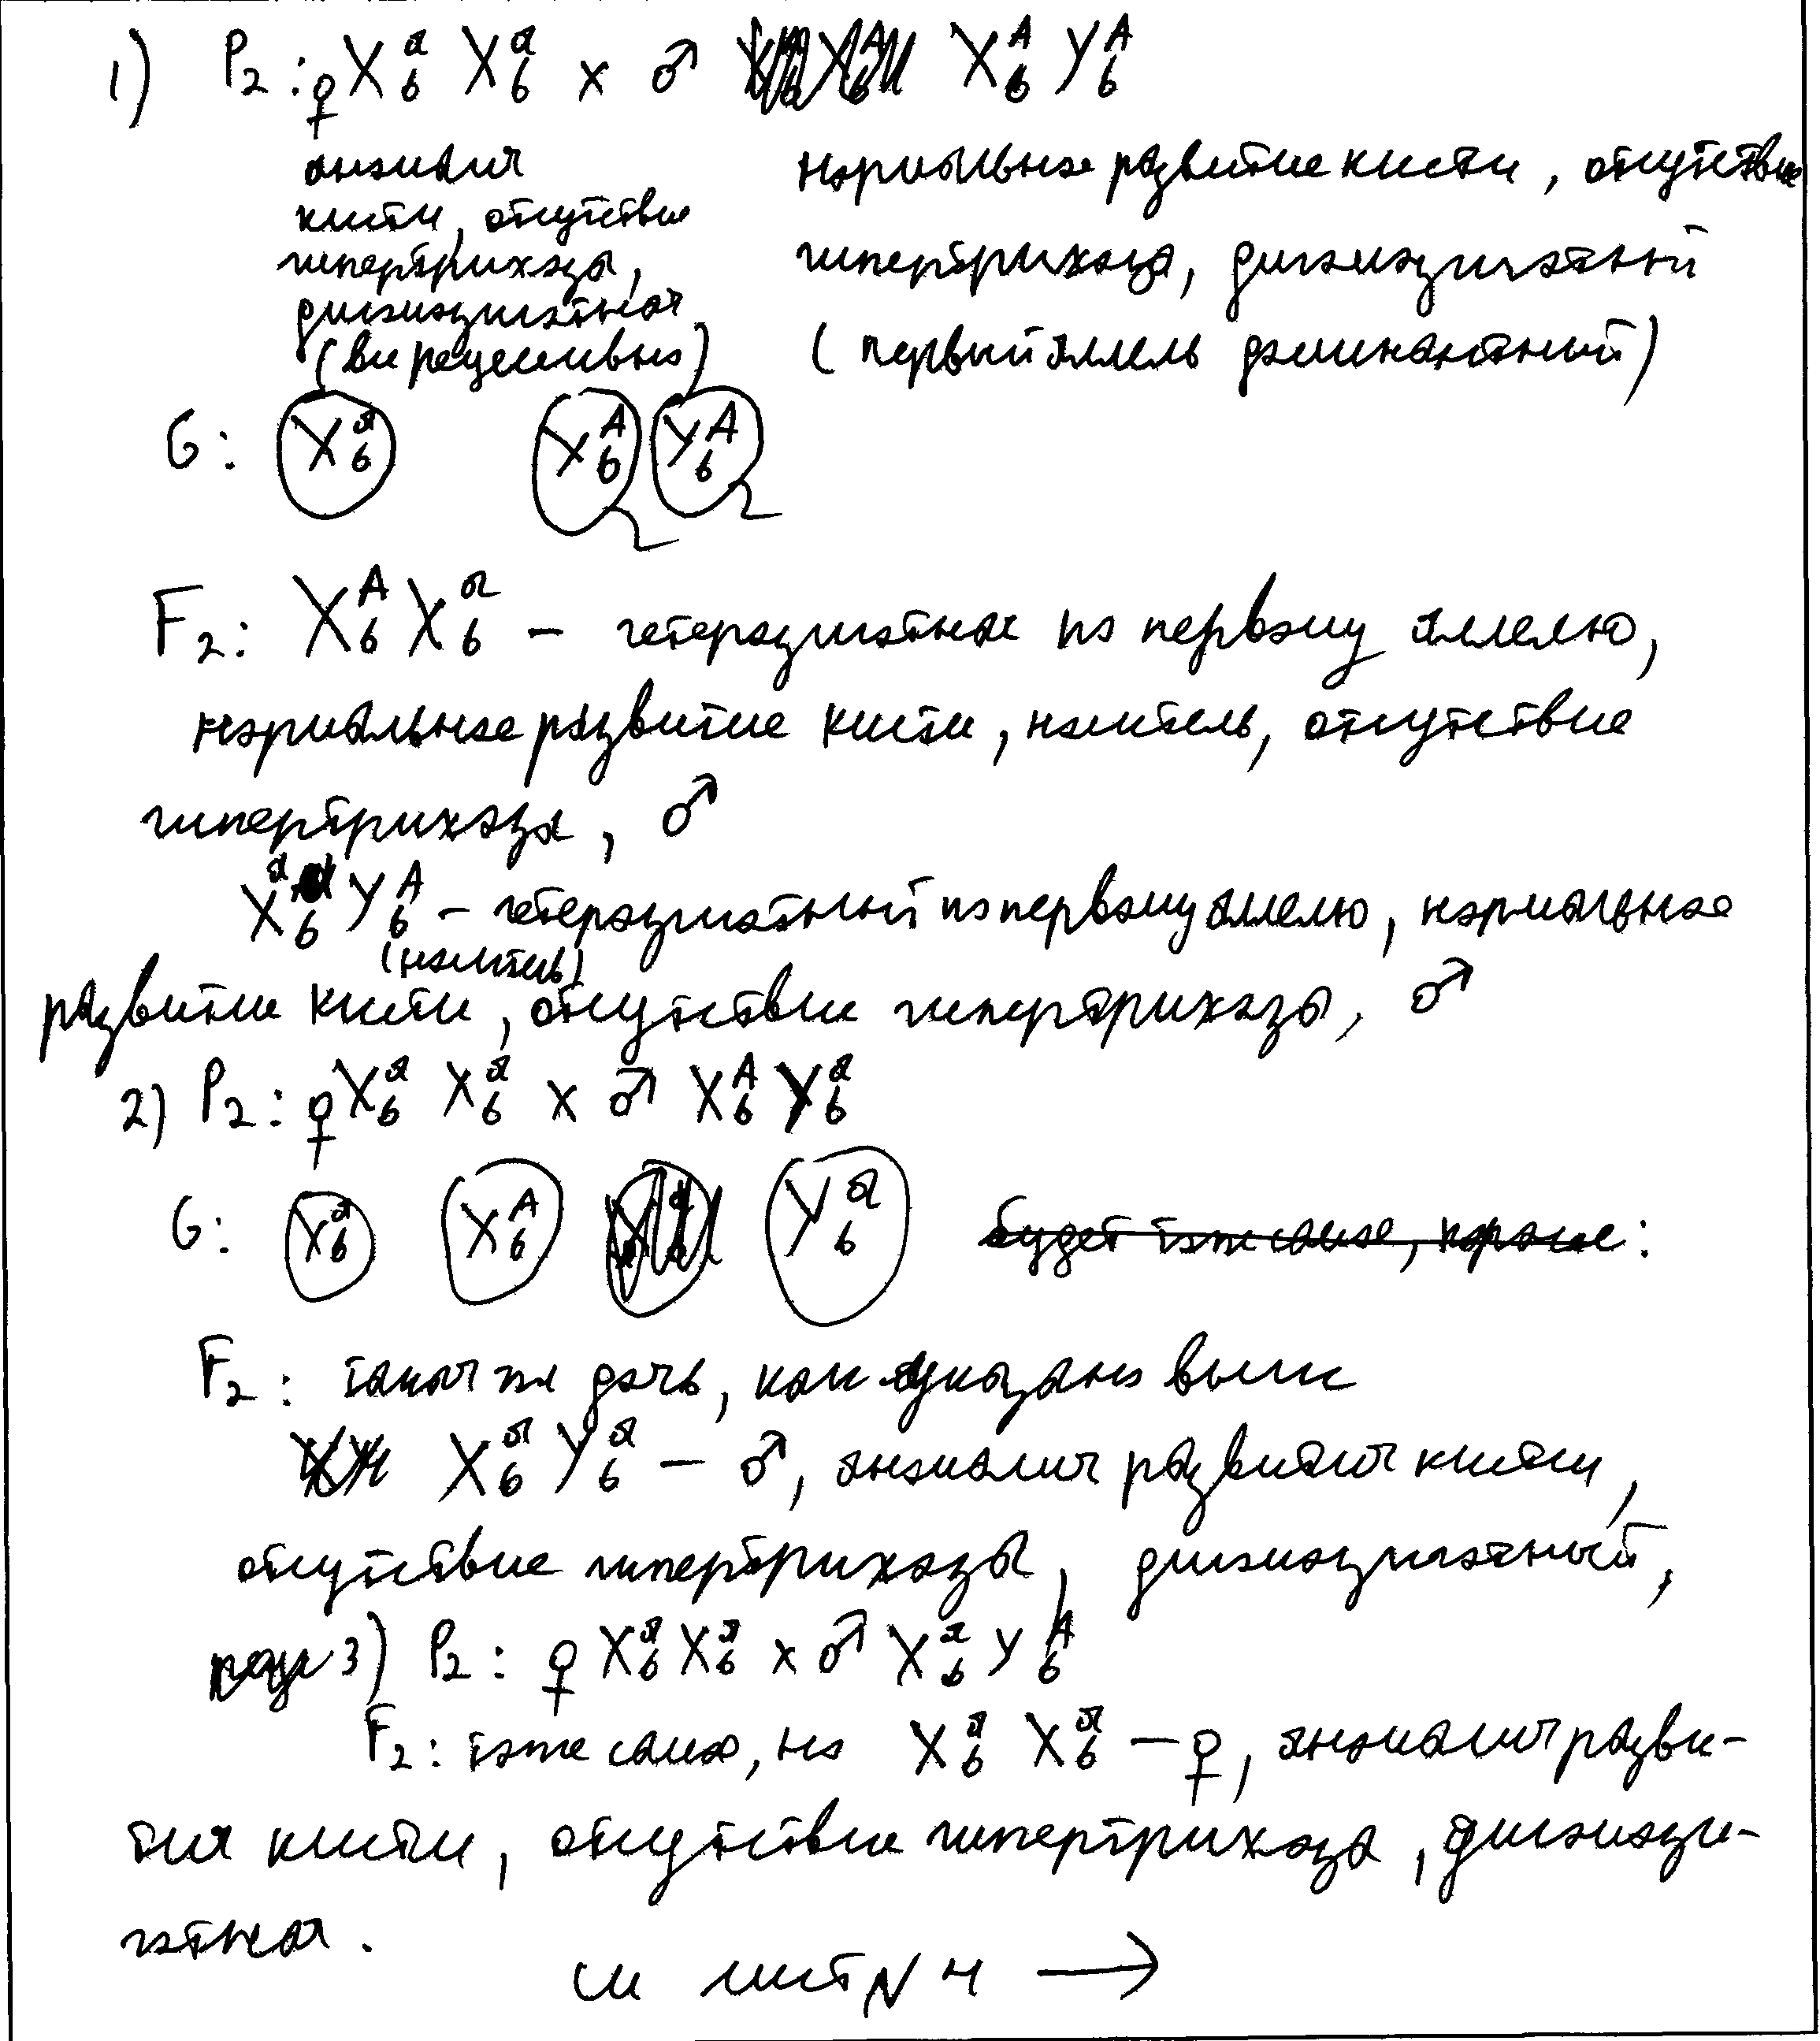 1) P₂: ♀ Xᵃ₆ Xᵃ₆ x ♂ Xᴬ₆ Yᴬ₆
аномалия
кисти, отсутствие
гипертрихоза,
дигомозиготная
(все рецессивны)
нормальное развитие кисти, отсутствие
гипертрихоза, дигомозиготный
(первый аллель доминантный)
G: Xᵃ₆ Xᴬ₆ Yᴬ₆
F₂: Xᴬ₆ Xᵃ₆ – гетерозиготная по первому аллелю,
нормальное развитие кисти, носитель, отсутствие
гипертрихоза, ♂
Xᵃ₆ Yᴬ₆ – гетерозиготный по первому аллелю, нормальное
(носитель)
развитие кисти, отсутствие гипертрихоза, ♂
2) P₂: ♀ Xᵃ₆ Xᵃ₆ x ♂ Xᴬ₆ Yᵃ₆
G: Xᵃ₆ Xᴬ₆ Yᵃ₆ будет то же самое, кроме:
F₂: такая же дочь, как указано выше
Xᵃ₆ Yᵃ₆ – ♂, аномалия развития кисти,
отсутствие гипертрихоза, дигомозиготный,
3) P₂: ♀ Xᵃ₆ Xᵃ₆ x ♂ Xᵃ₆ Yᴬ₆
F₂: то же самое, но Xᵃ₆ Xᵃ₆ – ♀, аномалия разви-
тия кисти, отсутствие гипертрихоза, дигомози-
готная.
см лист N 4 →